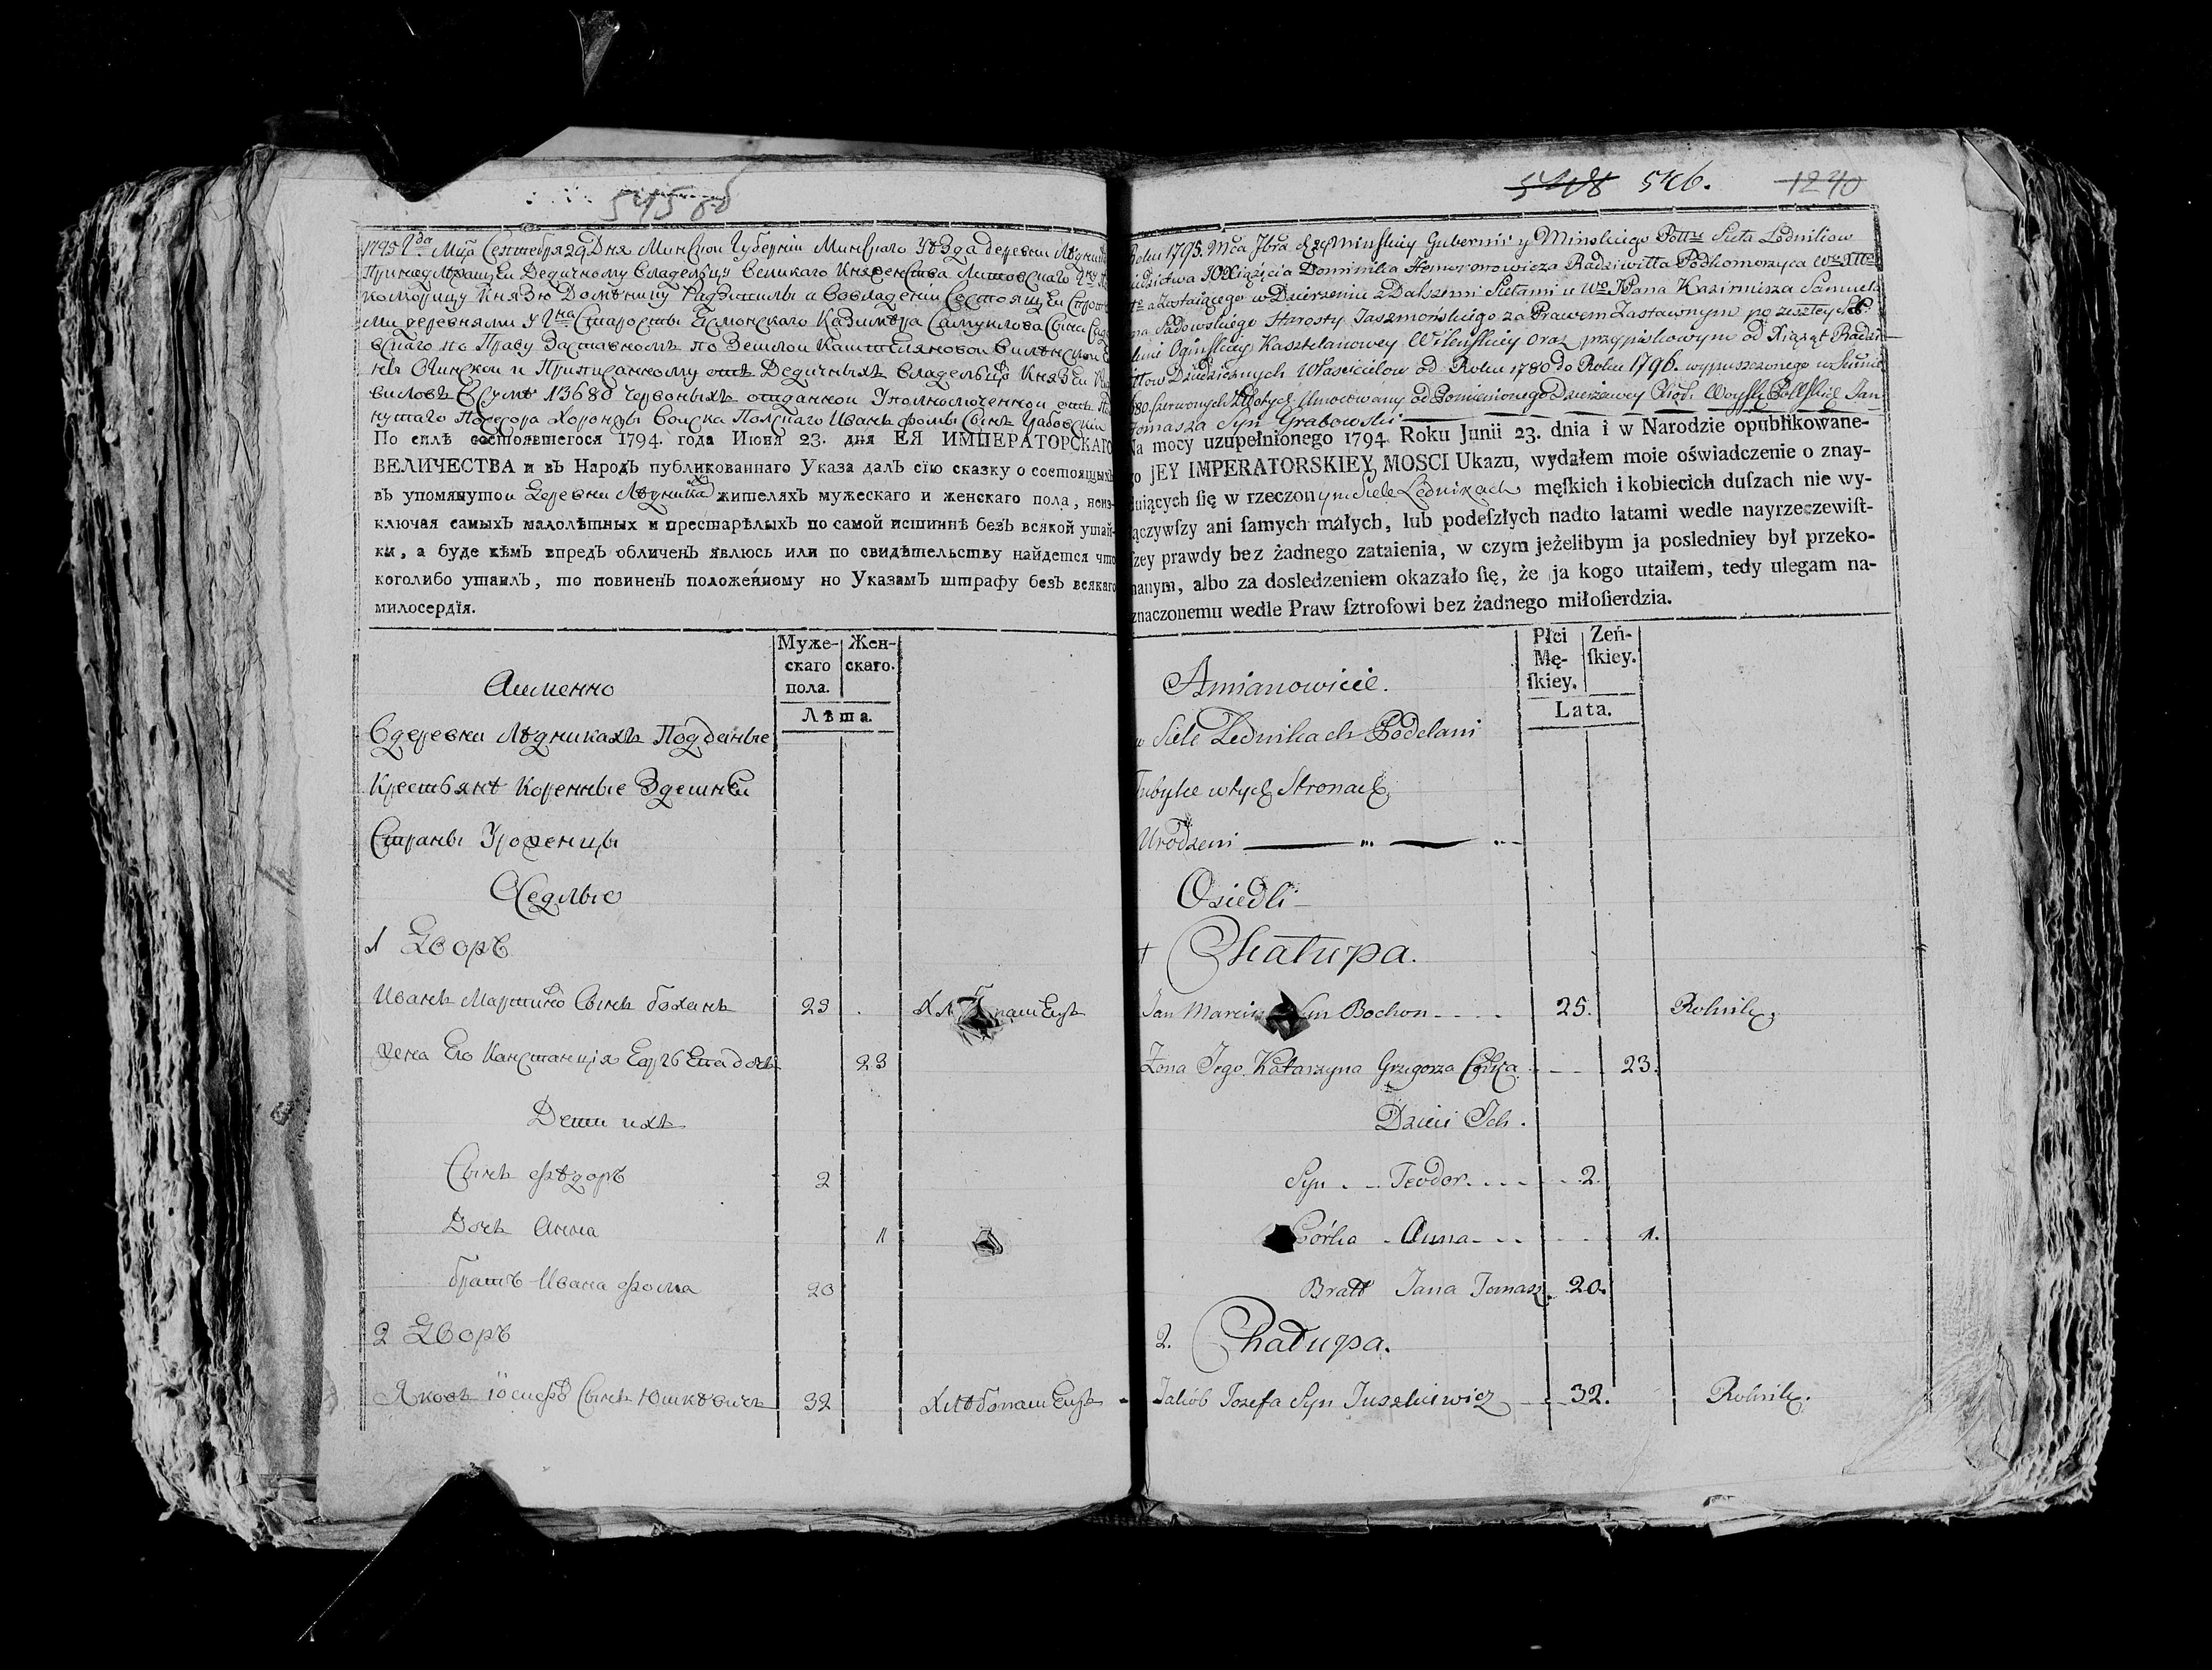 545 об
1795 Года Мца Сентября 29 Дня Минской Губерніи Минскаго Уѣзда деревни Лѣдники
Принадлежащей Дедичному Владельцу Великаго Княженства Литовскаго
коморицу Князю Доминику Радзивилы а вовладеніи Состоящей
ми деревнями у Старосты Есмонскаго Казимера Самуилова Сына
вскаго по Праву Заставномъ по Зешлой Каштеляновой Виленской
Огинской и Приписанному отъ Дедичныхъ Владельцовъ Князей
виловъ Всумѣ 13680 Червоныхъ отданной Уполномоченной отъ
нутаго Посесора Хоронжы Войска Полскаго Иванъ Фомы Сынъ Грабовски
По силѣ состоявшегося 1794. года Июня 23. дня ЕЯ ИМПЕРАТОРСКАГО
ВЕЛИЧЕСТВА и въ Народъ публикованнаго Указа далъ сїю сказку о состоящихъ
въ упомянутой Деревни Лѣдникахъ жителяхъ мужескаго и женскаго пола, неиз-
ключая самыхъ малолѣтныхъ и престарѣлыхъ по самой истиннѣ безъ всякой утай-
ки, а буде кѣмъ впредъ обличенъ явлюсь или по свидѣтельству найдется что
коголибо утаилъ, то повиненъ положенному по Указамъ штрафу безъ всякаго
милосердїя.
Муже-скаго пола. Жен-скаго.
Лѣта.
Аименно
Вдеревни Лѣдникахъ Подданые
Крестьянѣ Коренные Здешнѣй
Страны Уроженцы
Оседлые
1 Дворъ
Иванъ Мартинѡ Сынъ Боханъ 25 Хл паш
Жена Его Канстанція дочь 23
Дети ихъ
Сынъ Фѣдоръ 2
Дочь Анна 1
братъ Ивана Фома 20
2 Дворъ
Яковъ Іосифѡ Сынъ Юшкѣвичъ 32 Хлѣбопашецъ
5418 546. 1240
Roku 1795. Mca 7bra d. 29 Minskiey Gubernii y Minskiego Pottu Sieła Lodnikow
dzictwa JOXiążęcia Dominika Hieronimowicza Radziwiłła Podkomorzyca
a zostaiącego w Dzierżeniu z Dalszemi Siełami u Pana Kazimierza Samuela
na Sadowskiego Starosty Jaszmońskiego za Prawem Zastawnym po zeszłey
Oginskiey Kasztelanowey Wileńskiey oraz przypiskowym od Xiążąt Radzi-
iłłow Dziedzicznych Własicielow od Roku 1780 do Roku 1796. wypuszczonego w Summie
680. Czerwonych Złotych Umocowany od Pomienionego Dzierżawcy Woysk Polskich Jan
Tomasza Syn Grabowski
Na mocy uzupełnionego 1794 Roku Junii 23. dnia i w Narodzie opublikowane-
go JEY IMPERATORSKIEY MOSCI Ukazu, wydałem moie oświadczenie o znay-
duiących ſię w rzeczonym Siele Lednikach męſkich i kobiecich duſzach nie wy-
łączywſzy ani ſamych małych, lub podeſzłych nadto latami wedle nayrzeczewiſt-
ſzey prawdy bez żadnego zataienia, w czym jeżelibym ja posledniey był przeko-
nanym, albo za dosledzeniem okazało ſię, że ja kogo utaiłem, tedy ulegam na-
znaczonemu wedle Praw ſztrofowi bez żadnego miłoſierdzia.
Płci Mę-ſkiey. Zeń-ſkiey.
Lata.
Amianowicie.
w Siele Lednikach Poddani
Tubylce wtych Stronach
Urodzeni
Osiedli
1 Chałupa.
Jan Marcin Syn Bochon 25. Rolnik.
Żona Jego Katarzyna Grzegorza Córka 23.
Dzieci Ich.
Syn Teodor 2.
Córka Anna 1.
Bratt Jana Tomasz 20.
2. Chałupa.
Jakób Jozefa Syn Juszkiewicz 32. Rolnik.